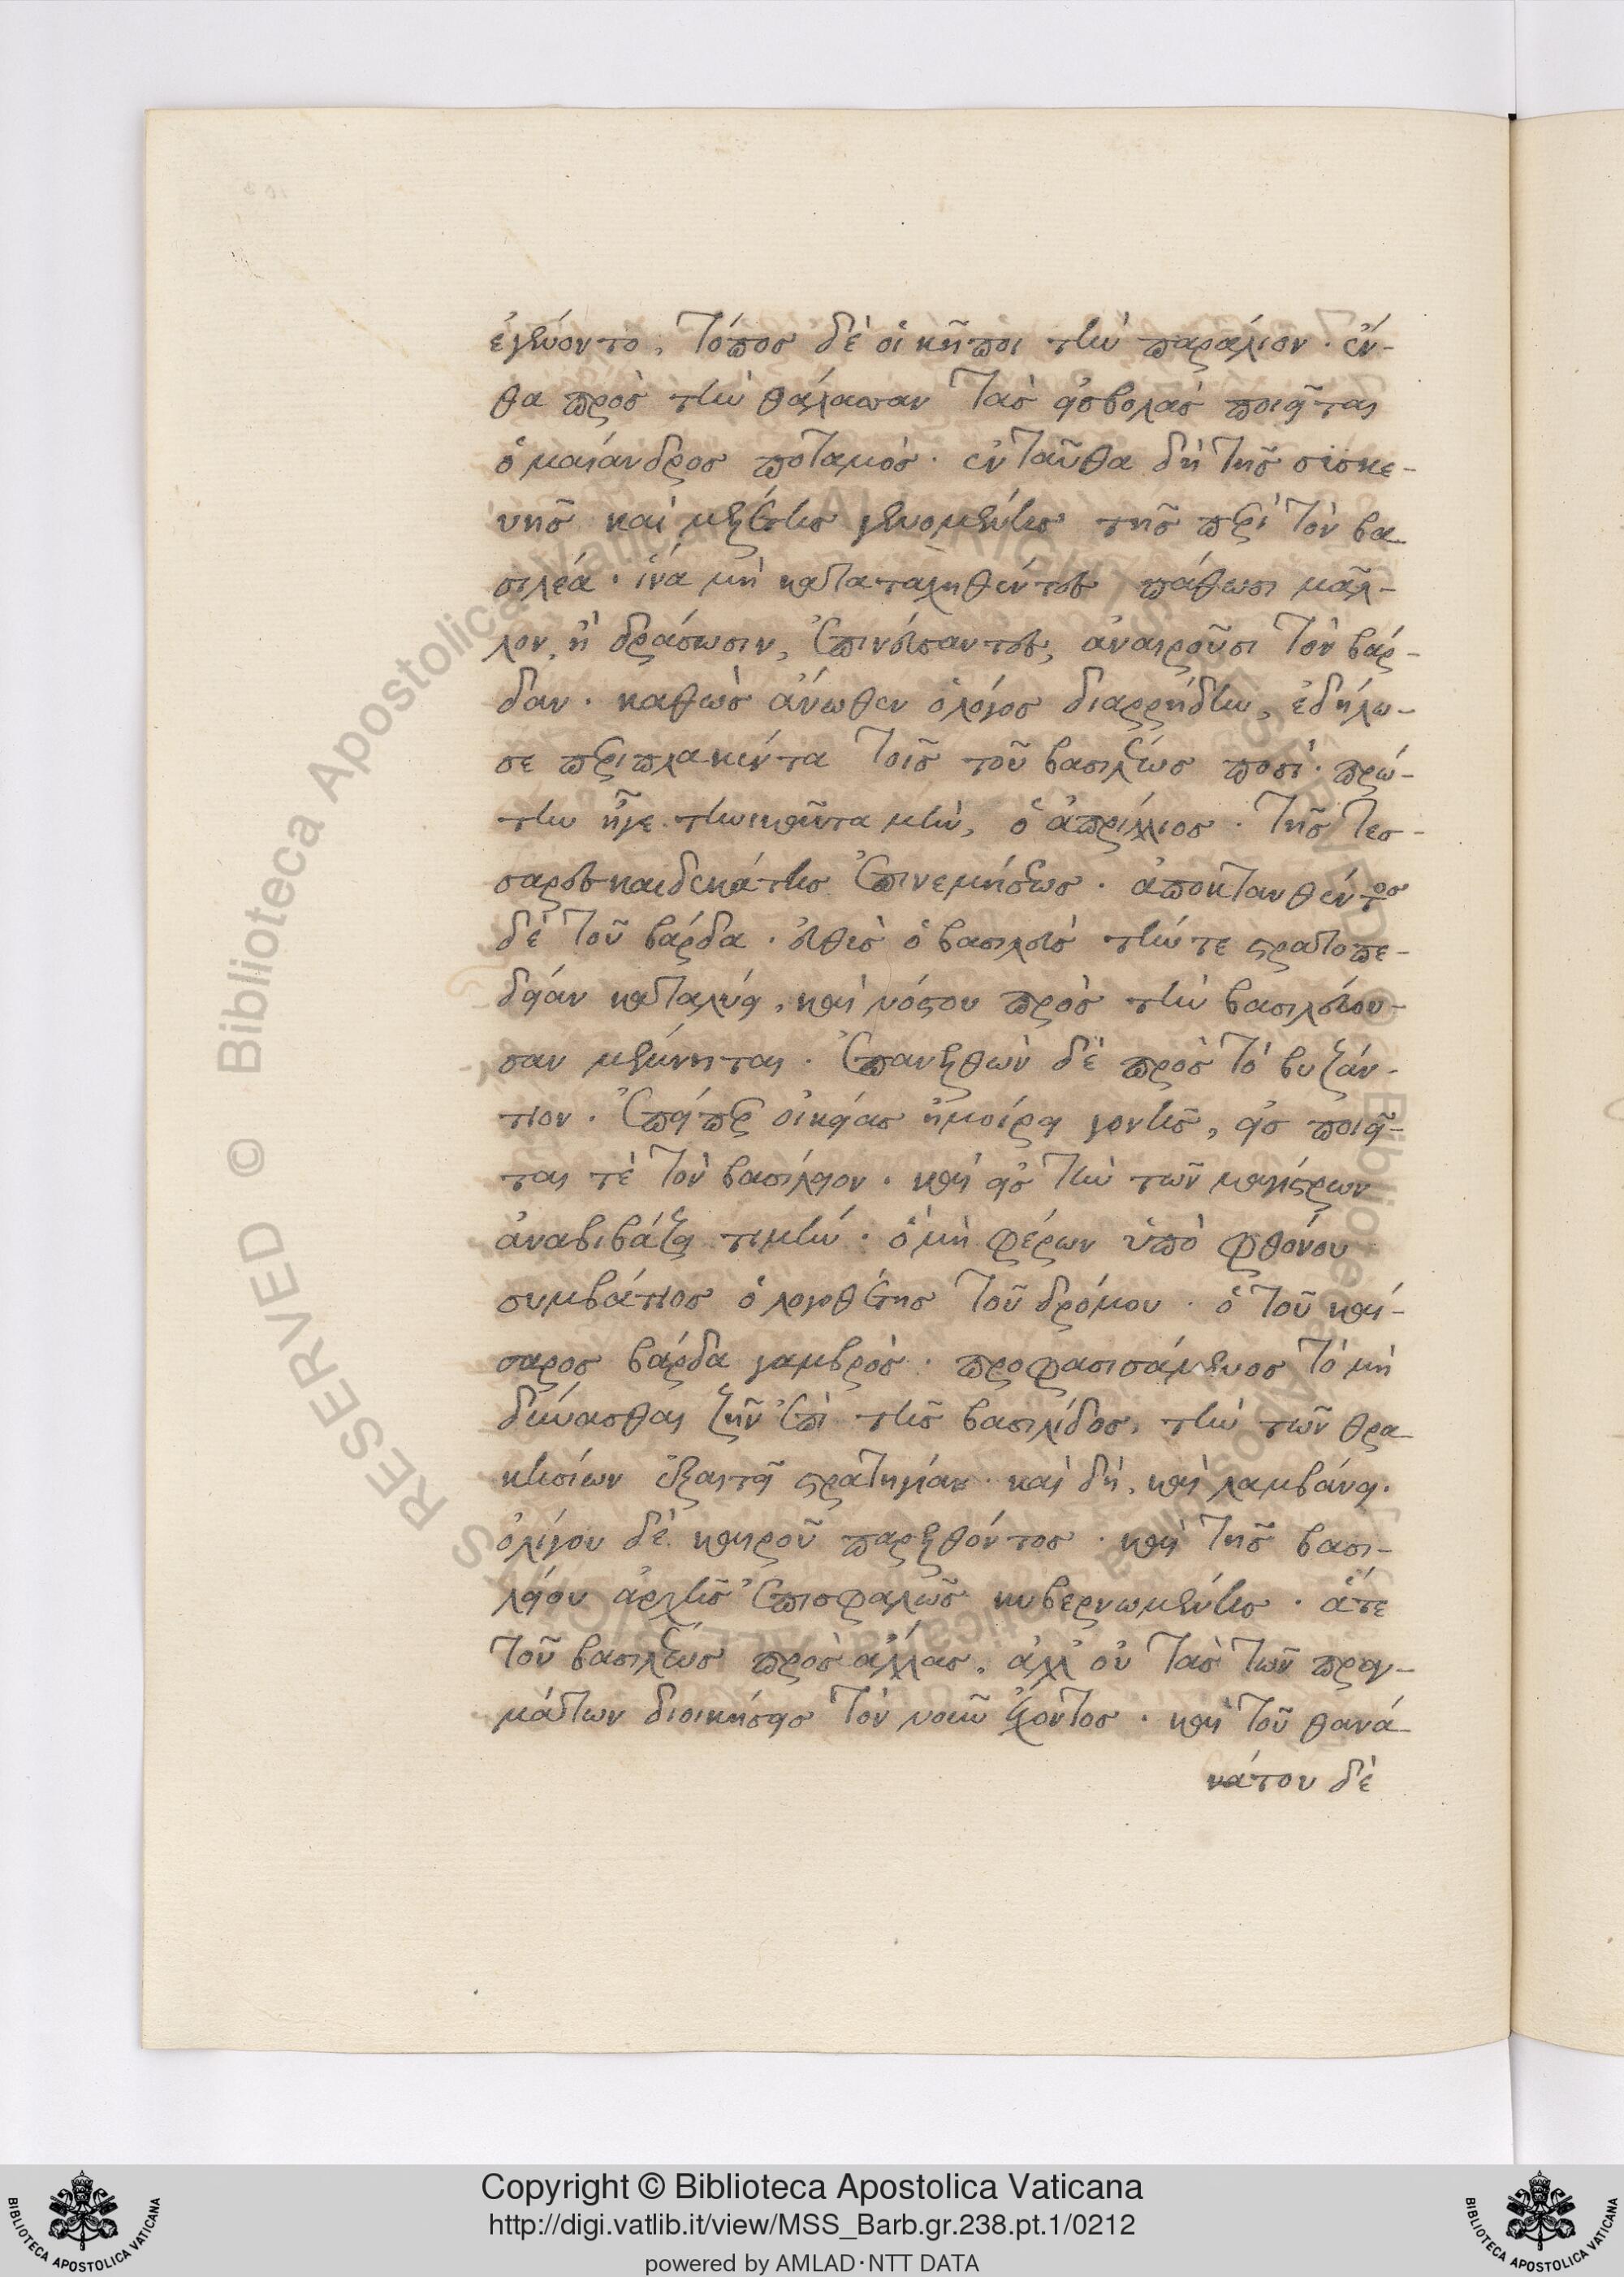 ἐγένοντο, τόπος δὲ οἱ κῆποι τὴν παράλιον. ἔν-
θα πρὸς τὴν θάλασσαν τὰς εἰσβολὰς ποιεῖται
ὁ μαίανδρος ποταμὸς. ἐνταῦθα δὴ τῆς συσκε-
υῆς καὶ μελέτης γενομένης τῆς περὶ τὸν βα-
σιλέα. ἵνα μὴ καταταχηθέντες πάθωσι μᾶλ-
λον, ἢ δράσωσιν, ἐπινεύσαντες, ἀναιροῦσι τὸν βάρ-
δαν. καθὼς ἄνωθεν ὁ λόγος διαρρήδην, ἐδήλω-
σε περιπλακέντα τοῖς τοῦ βασιλέως ποσὶ. πρώ-
την ἦγε τηνικαῦτα μὴν, ὁ ἀπρίλλιος. τῆς τεσ-
σαρεσκαιδεκάτης ἐπινεμήσεως. ἀποκτανθέντος
δὲ τοῦ βάρδα. εὐθὺς ὁ βασιλεὺς τήν τε στρατοπε-
δείαν καταλύει, καὶ νόστου πρὸς τὴν βασιλεύου-
σαν μέμνηται. ἐπανελθὼν δὲ πρὸς τὸ βυζάν-
τιον. ἐπείπερ οἰκείας ἠμοίρει γονῆς, εἰσποιεῖ-
ται τὲ τὸν βασίλειον. καὶ εἰς τὴν τῶν μαγίστρων
ἀναβιβάζει τιμήν. ὁ μὴ φέρων ὑπὸ φθόνου
συμβάτιος ὁ λογοθέτης τοῦ δρόμου. ὁ τοῦ καί-
σαρος βάρδα γαμβρὸς. προφασισάμενος τὸ μὴ
δύνασθαι ζῆν ἐπὶ τῆς βασιλίδος, τὴν τῶν θρα-
κησίων ἐξαιτεῖ στρατηγίαν. καὶ δὴ, καὶ λαμβάνει.
ὀλίγου δὲ καιροῦ παρελθόντος. καὶ τῆς βασι-
λείου ἀρχῆς ἐπισφαλῶς κυβερνωμένης. ἅτε
τοῦ βασιλέως πρὸς ἄλλας, ἀλλ' οὐ τὰς τῶν πραγ-
μάτων διοικήσεις τὸν νοῦν ἔχοντος. καὶ τοῦ θανά-
νάτου δὲ
Copyright © Biblioteca Apostolica Vaticana
http://digi.vatlib.it/view/MSS_Barb.gr.238.pt.1/0212
powered by AMLAD·NTT DATA